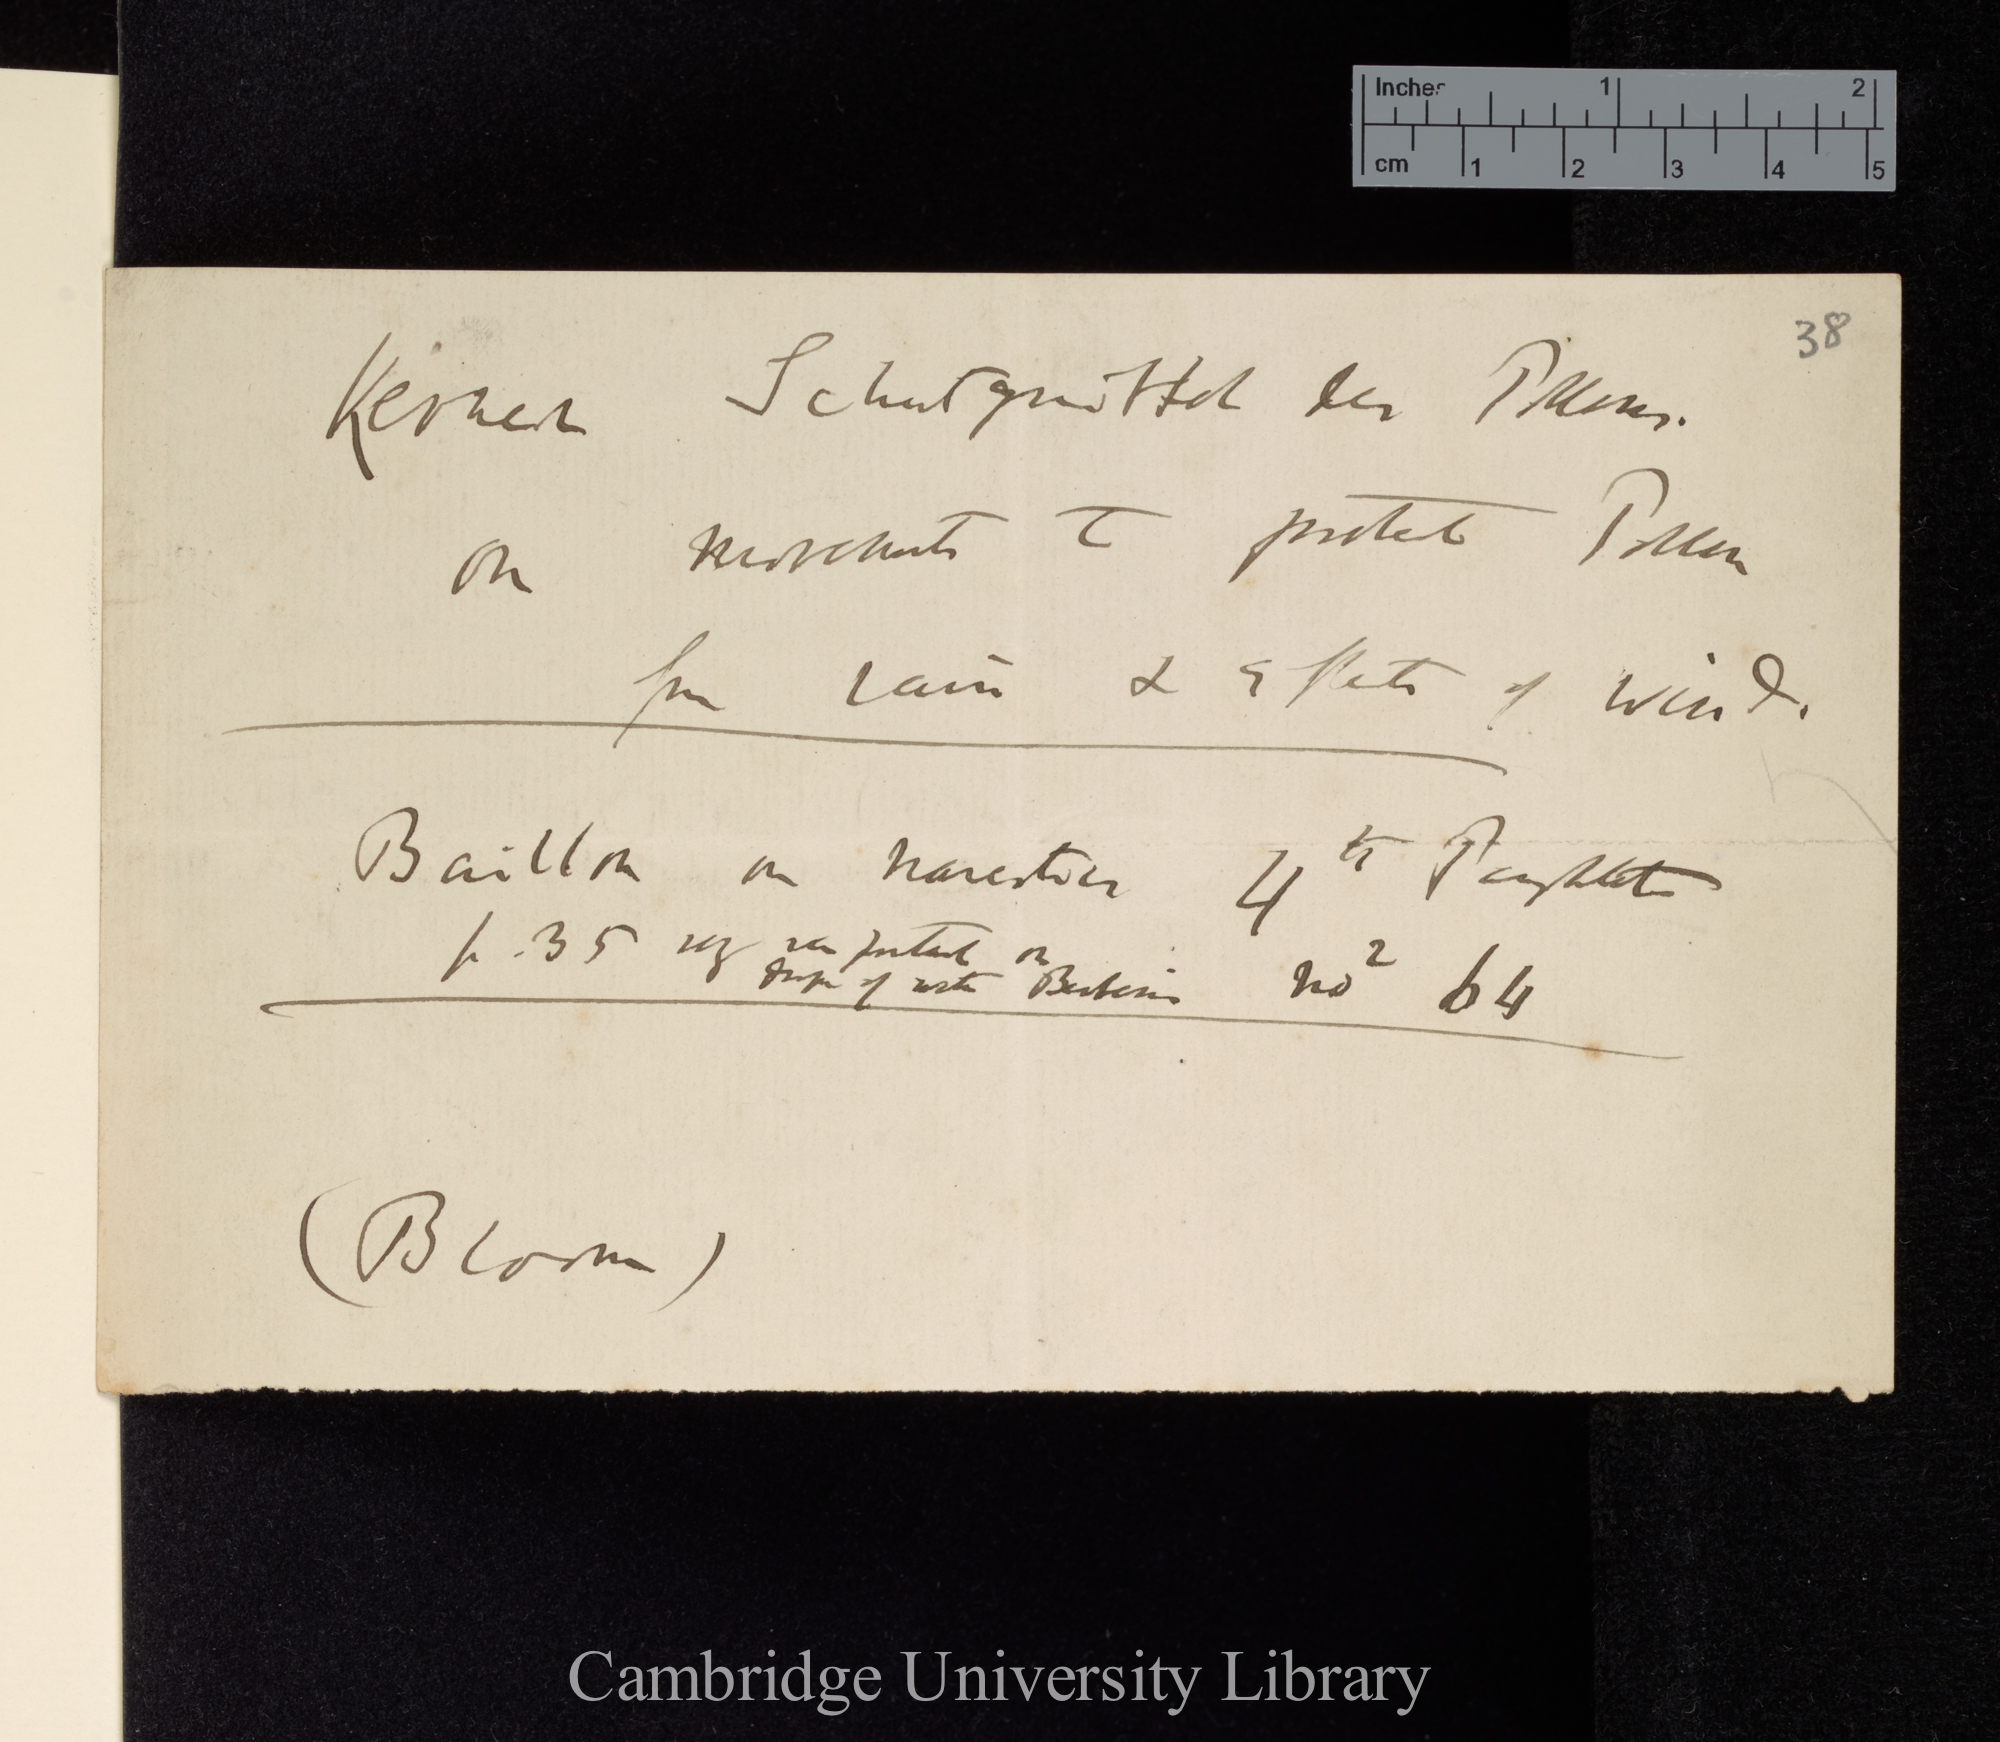 Inches 1 2
cm 1 2 3 4 5
38
Kerner Schutzmittel des Pollens.
on movements to protect Pollen
from rain & effects of wind.
Baillon on 4th Pamphlet
p. 35 on
drops of water Berberis no 2 64
(Bloom)
Cambridge University Library